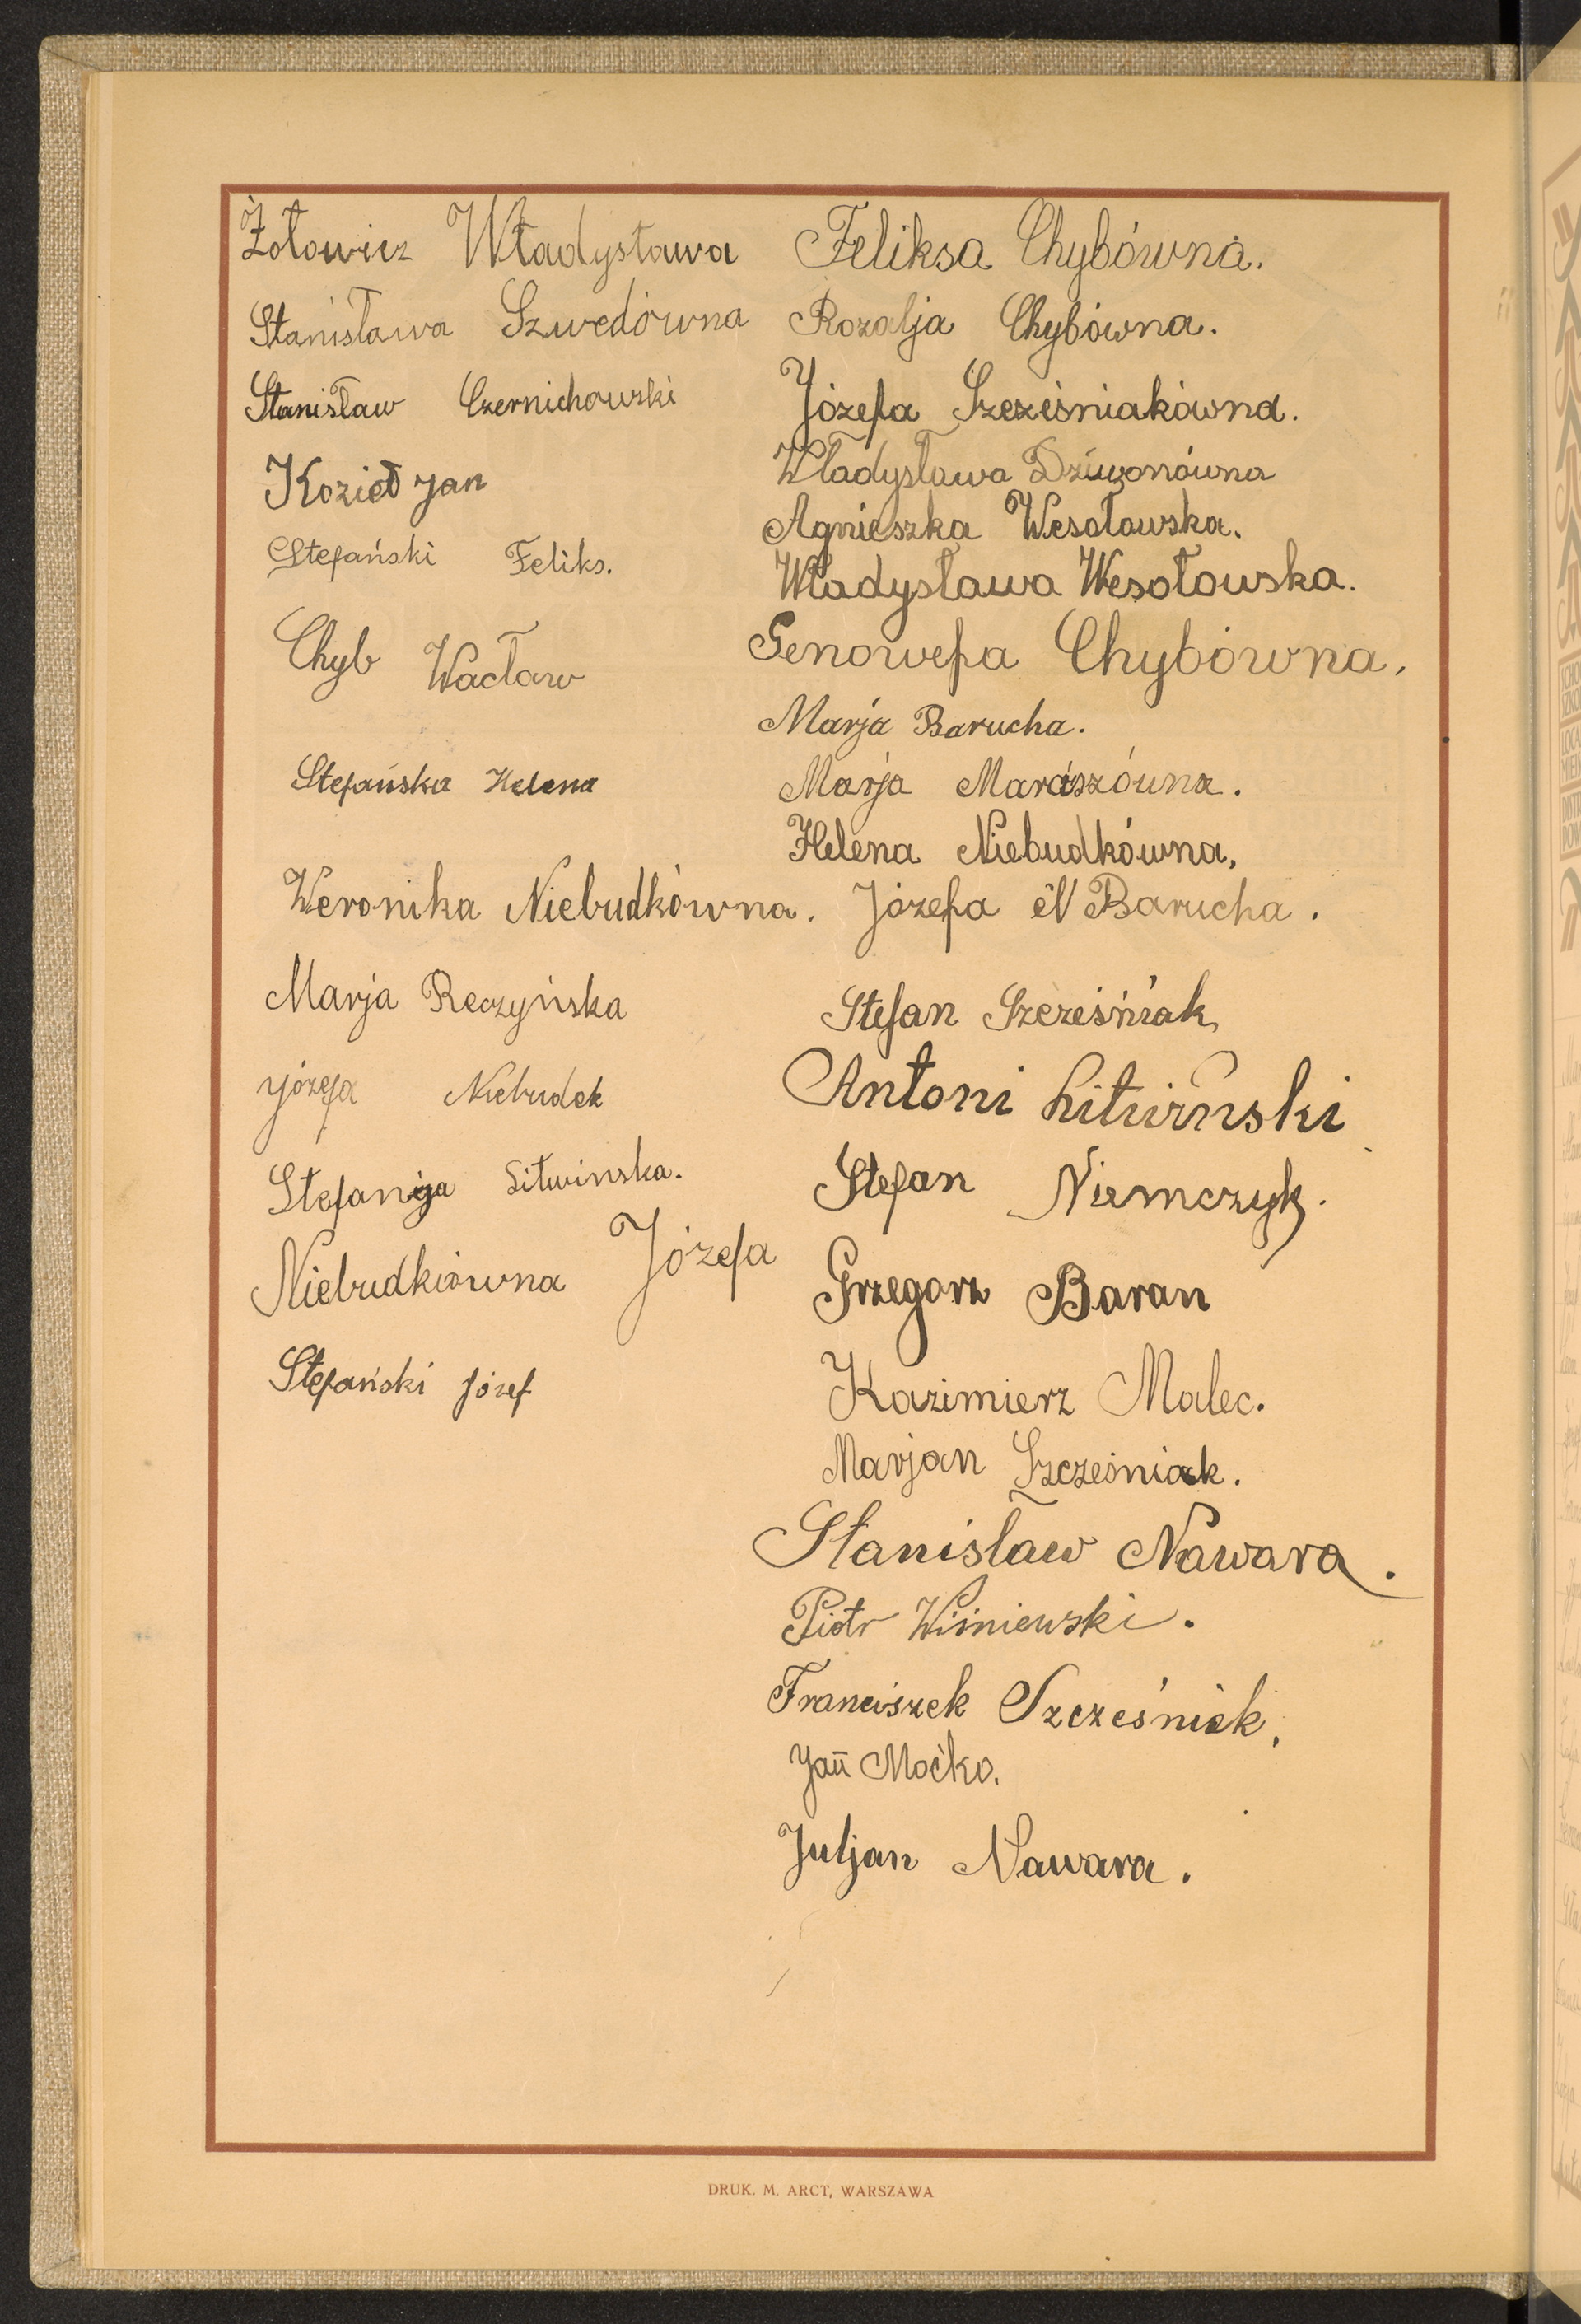 Żołowicz Władysława
Stanisława Szwedówna
Stanisław Czernichowski
Kozieł Jan
Stefański Feliks.
Chyb Wacław
Stefańska Helena
Weronika Niebudkówna.
Marja Reczyńska
Józefa Niebudek
Stefanja Litwinska.
Niebudkiówna Józefa
Stefański Józef
Feliksa Chybówna.
Rozalja Chybówna.
Józefa Szcześniakówna.
Władysława
Agnieszka Wesołowska.
Władysława Wesołowska.
Genowefa Chybówna.
Marja Barucha.
Marja Maraszówna.
Helena Niebudkówna,
Józefa Barucha.
Stefan Szcześniak
Antoni Litwinski
Stefan Niemczyk.
Grzegorz Baran
Kazimierz Malec.
Marjan Szcześniak.
Stanisław Nawara.
Piotr Wiśniewski.
Franciszek Szcześniak.
Jan Moćko.
Juljan Nawara.
DRUK. M. ARCT, WARSZAWA